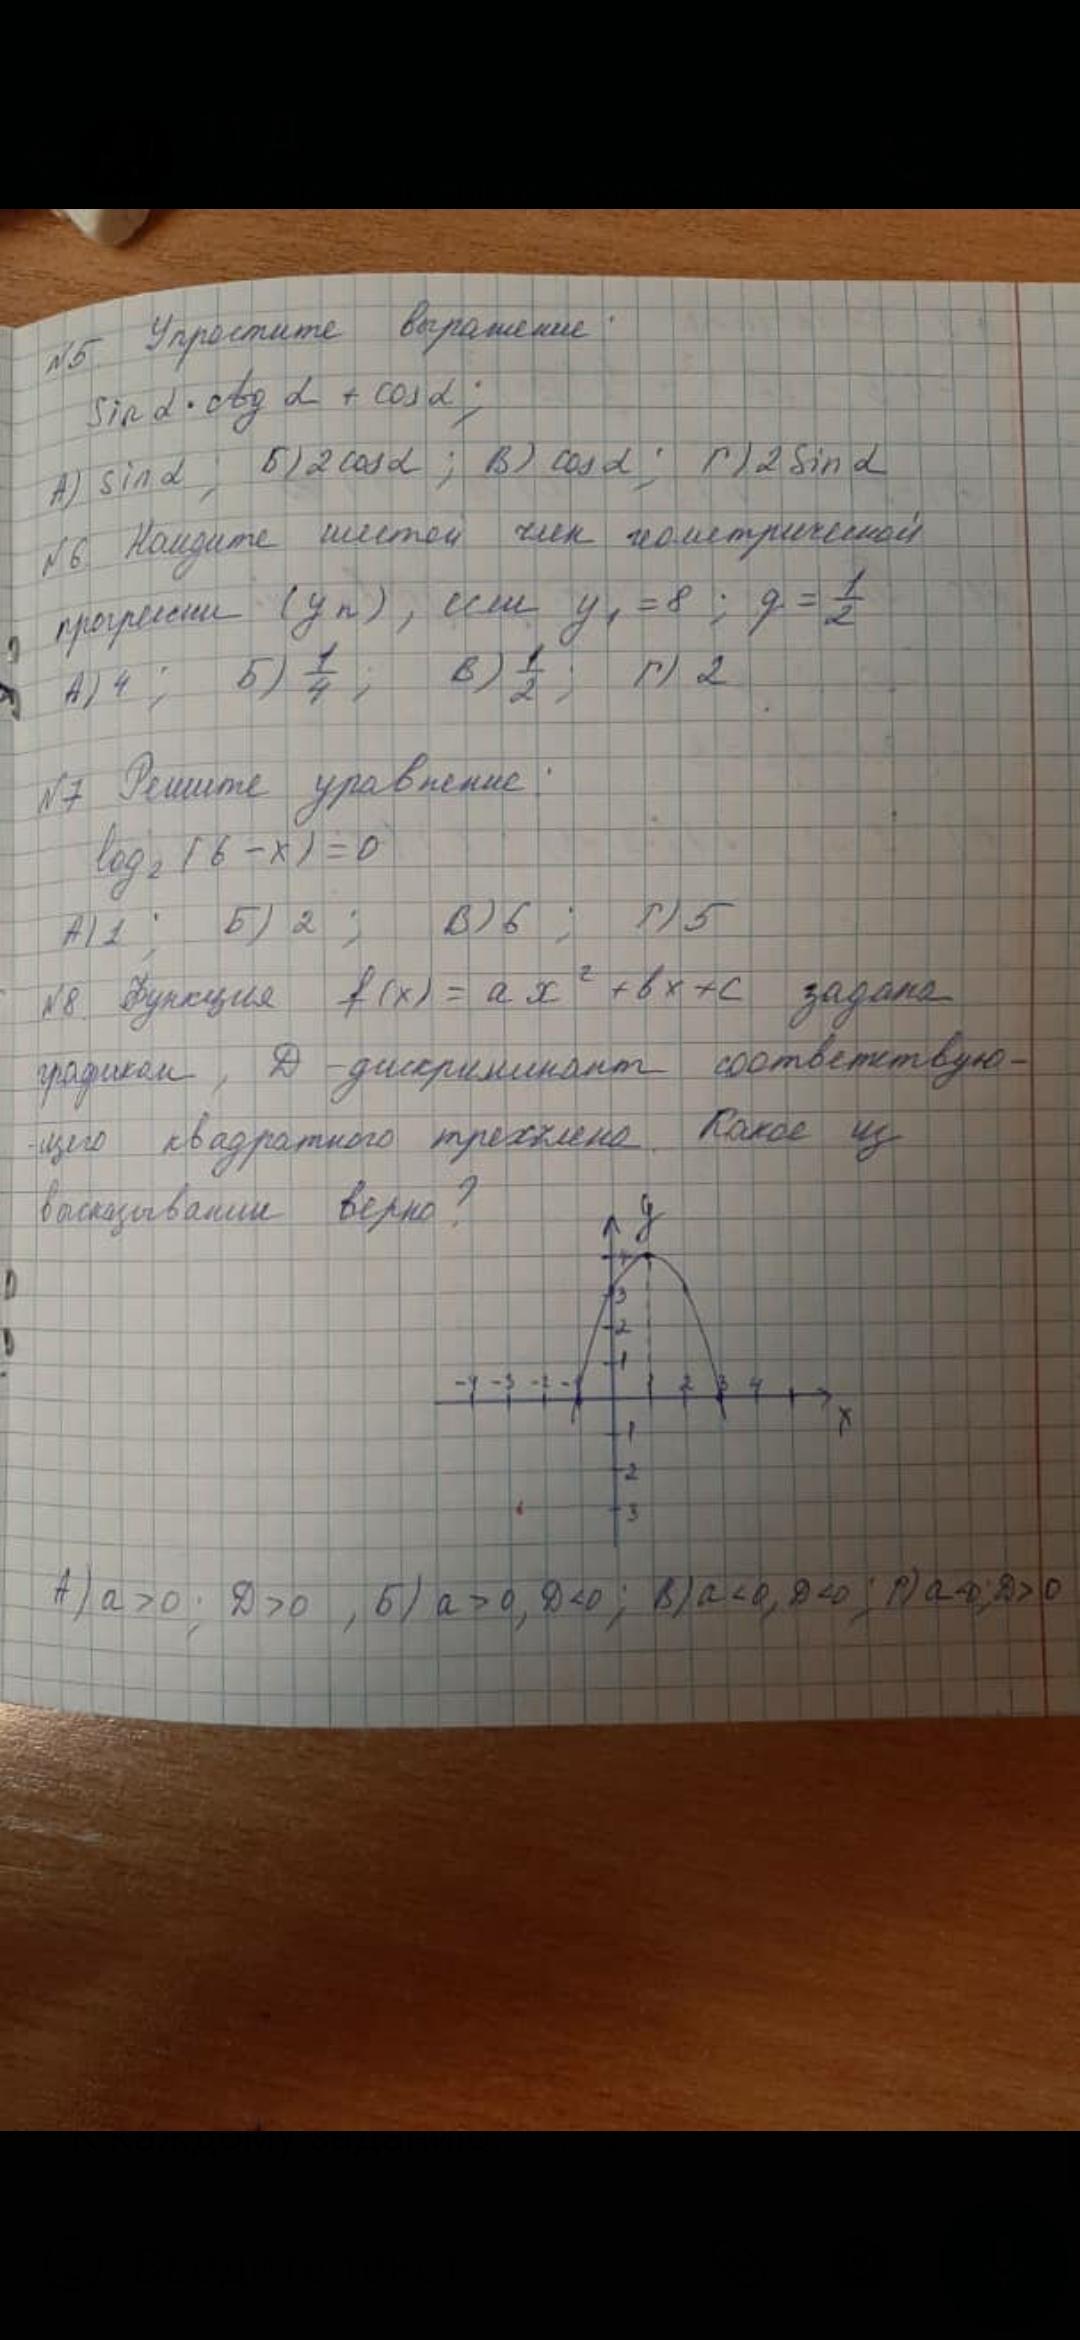 №5. Упростите выражение:
sin α · ctg α + cos α;
А) sin α; Б) 2 cos α; В) cos α; Г) 2 sin α
№6 Найдите шестой член геометрической
прогрессии (yn), если y₁ = 8; q = 1/2
А) 4; Б) 1/4; В) 1/2; Г) 2
№7 Решите уравнение:
log₂ (6 - x) = 0
А) 1; Б) 2; В) 6; Г) 5
№8. Функция f(x) = ax² + bx + c задана
графиком, D - дискриминант соответствую-
-щего квадратного трехчлена. Какое из
высказываний верно?
y
4
3
2
1
-4 -3 -2 -1 1 2 3 4
x
1
2
3
А) a > 0; D > 0, Б) a > 0, D < 0; В) a < 0, D < 0; Г) a < 0; D > 0